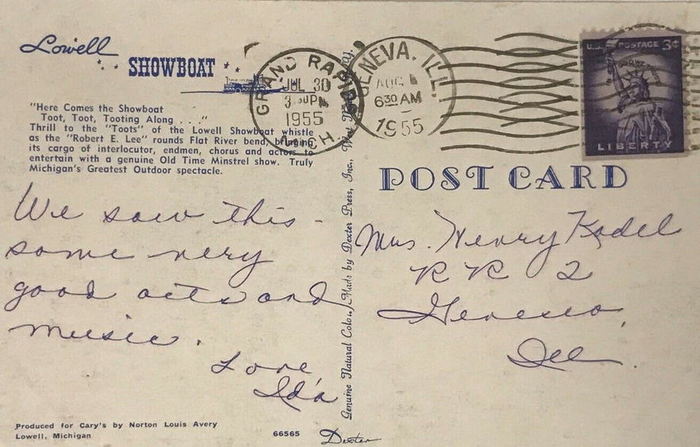 Lowell
SHOWBOAT
"Here Comes the Showboat
Toot, Toot, Tooting Along . . ."
Thrill to the "Toots" of the Lowell Showboat whistle
as the "Robert E. Lee" rounds Flat River bend, bringing
its cargo of interlocutor, endmen, chorus and actors to
entertain with a genuine Old Time Minstrel show. Truly
Michigan's Greatest Outdoor spectacle.
We saw this -
some very
good acts and
music.
Love,
Ida
Produced for Cary's by Norton Louis Avery
Lowell, Michigan
66565
Dexter
Genuine Natural Color, Made by Dexter Press, Inc., West
GRAND RAPIDS
JUL 30
PM
1955
MICH.
GENEVA, ILL.
AUG
6 30 AM
1955
U.S. POSTAGE 3¢
LIBERTY
POST CARD
Mrs. Henry Kodel
RR 2
Geneseo,
Ill